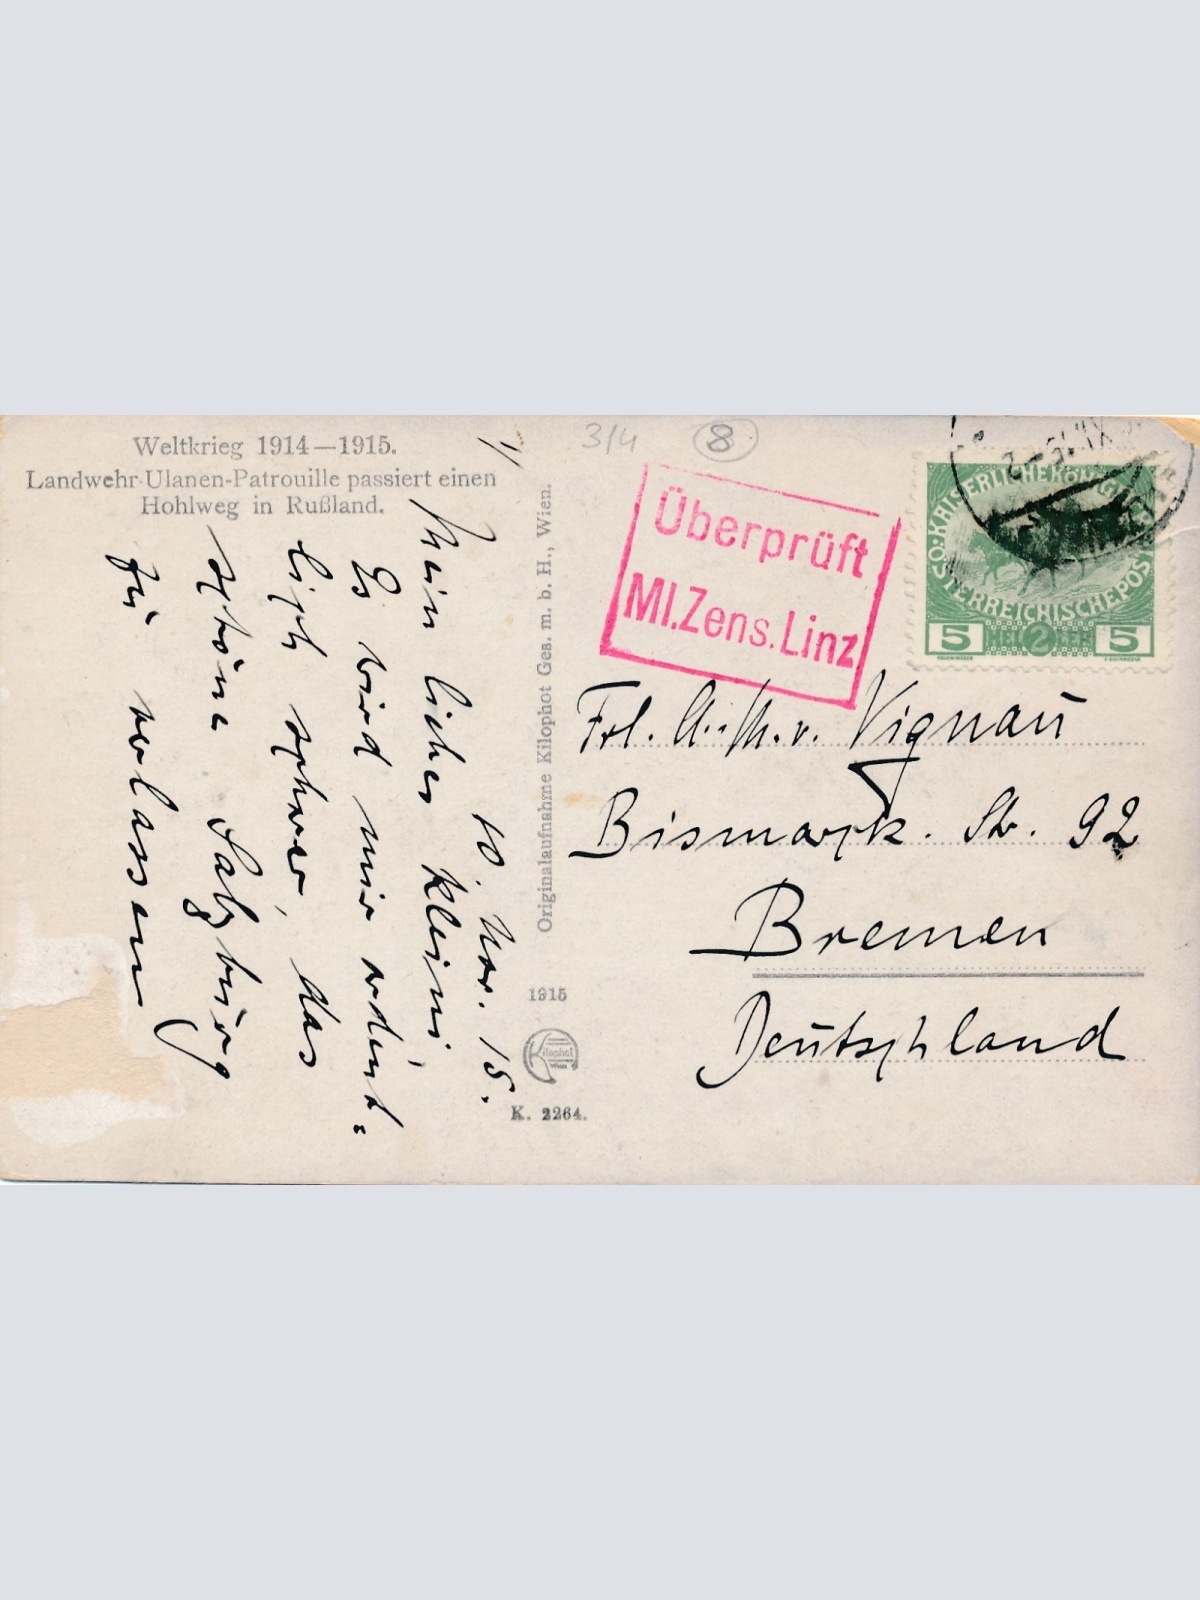 Weltkrieg 1914—1915.
Landwehr-Ulanen-Patrouille passiert einen
Hohlweg in Rußland.
1/
10. Nov. 15.
Mein liebes kleini
Es wird mir ordent-
lich schwer, das
schöne Salzburg
zu verlassen
Originalaufnahme Kilophot Ges. m. b. H., Wien.
1915
Kilophot
K. 2264.
3/4
8
Überprüft
MI.Zens.Linz
KAISERLICHEKÖNIGL
ÖSTERREICHISCHEPOST
5 2 5
Frl. A. M. v. Vignau
Bismarck. Str. 92
Bremen
Deutschland